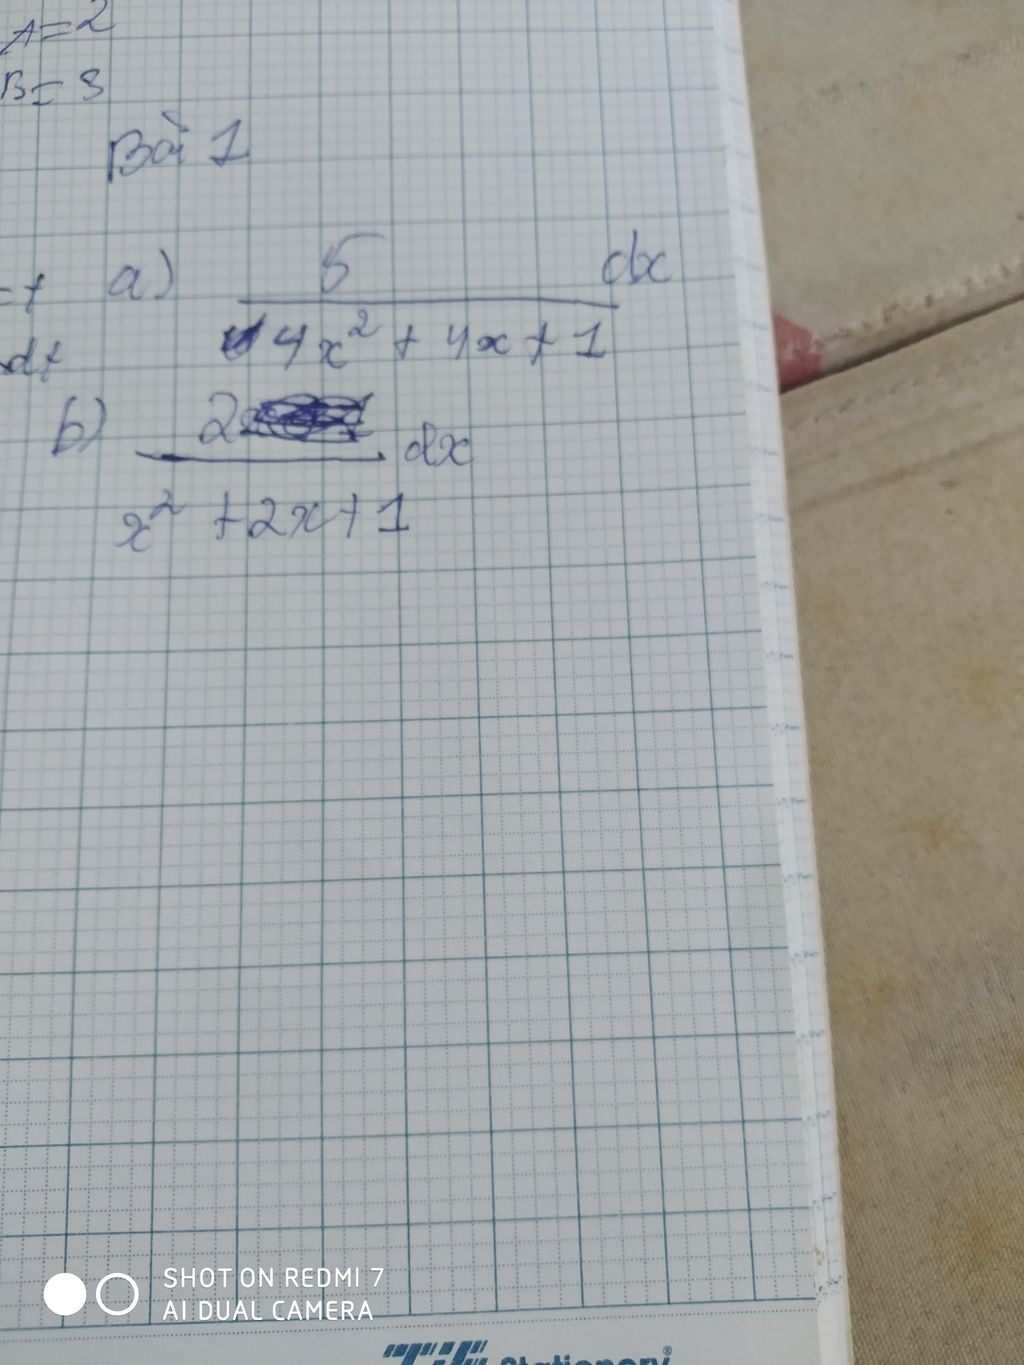 A = 2
B = 3
Bài 1
= t a) 5 dx
dt 4x² + 4x + 1
b) 2 dx
x² + 2x + 1
SHOT ON REDMI 7
AI DUAL CAMERA
Stationery®